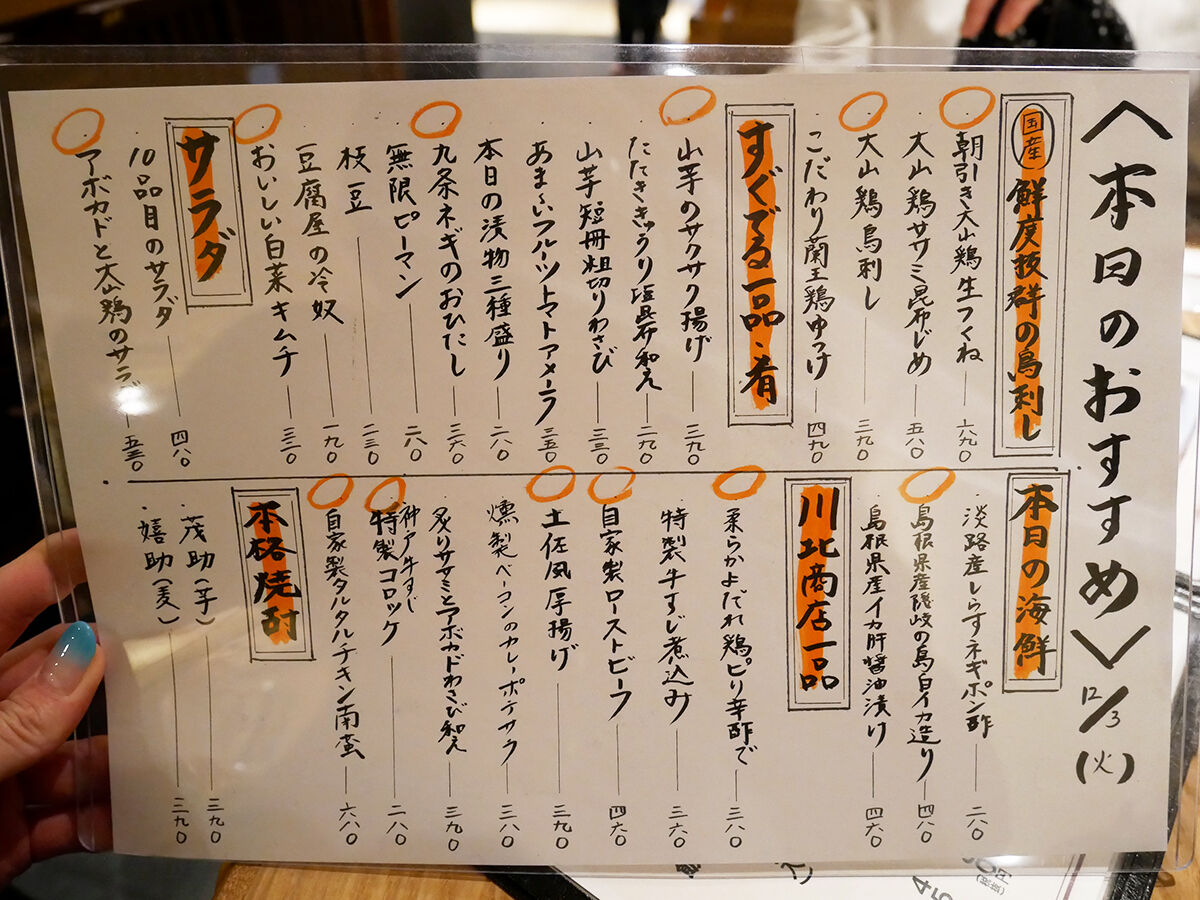 〈本日のおすすめ〉12/3(火)
国産 鮮度抜群の鳥刺し
・朝引き大山鶏生つくね 六九〇
・大山鶏ササミ昆布じめ 五八〇
・大山鶏鳥刺し 三九〇
・こだわり蘭王鶏ゆっけ 四九〇
すぐでる一品・肴
・山芋のサクサク揚げ 三九〇
・たたききゅうり塩昆布和え 二九〇
・山芋短冊粗切りわさび 三三〇
・あま〜いフルーツトマトアメーラ 三五〇
・本日の漬物三種盛り 二八〇
・九条ネギのおひたし 三六〇
・無限ピーマン 二八〇
・枝豆 二三〇
・豆腐屋の冷奴 一九〇
・おいしい白菜キムチ 三三〇
サラダ
・10品目のサラダ 四八〇
・アボカドと大山鶏のサラダ 五三〇
本日の海鮮
・淡路産しらすネギポン酢 二八〇
・島根県産隠岐の島白イカ造り 四八〇
・島根県産イカ肝醤油漬け 四六〇
川北商店一品
・柔らかよだれ鶏ピリ辛酢で 三八〇
・特製牛すじ煮込み 三六〇
・自家製ローストビーフ 四六〇
・土佐風厚揚げ 三九〇
・燻製ベーコンのカレーポテサラ 三八〇
・炙りササミとアボカドわさび和え 三九〇
・神戸牛すじ
特製コロッケ 二八〇
・自家製タルタルチキン南蛮 六八〇
本格焼酎
・茂助(芋) 三九〇
・嬉助(麦) 三九〇